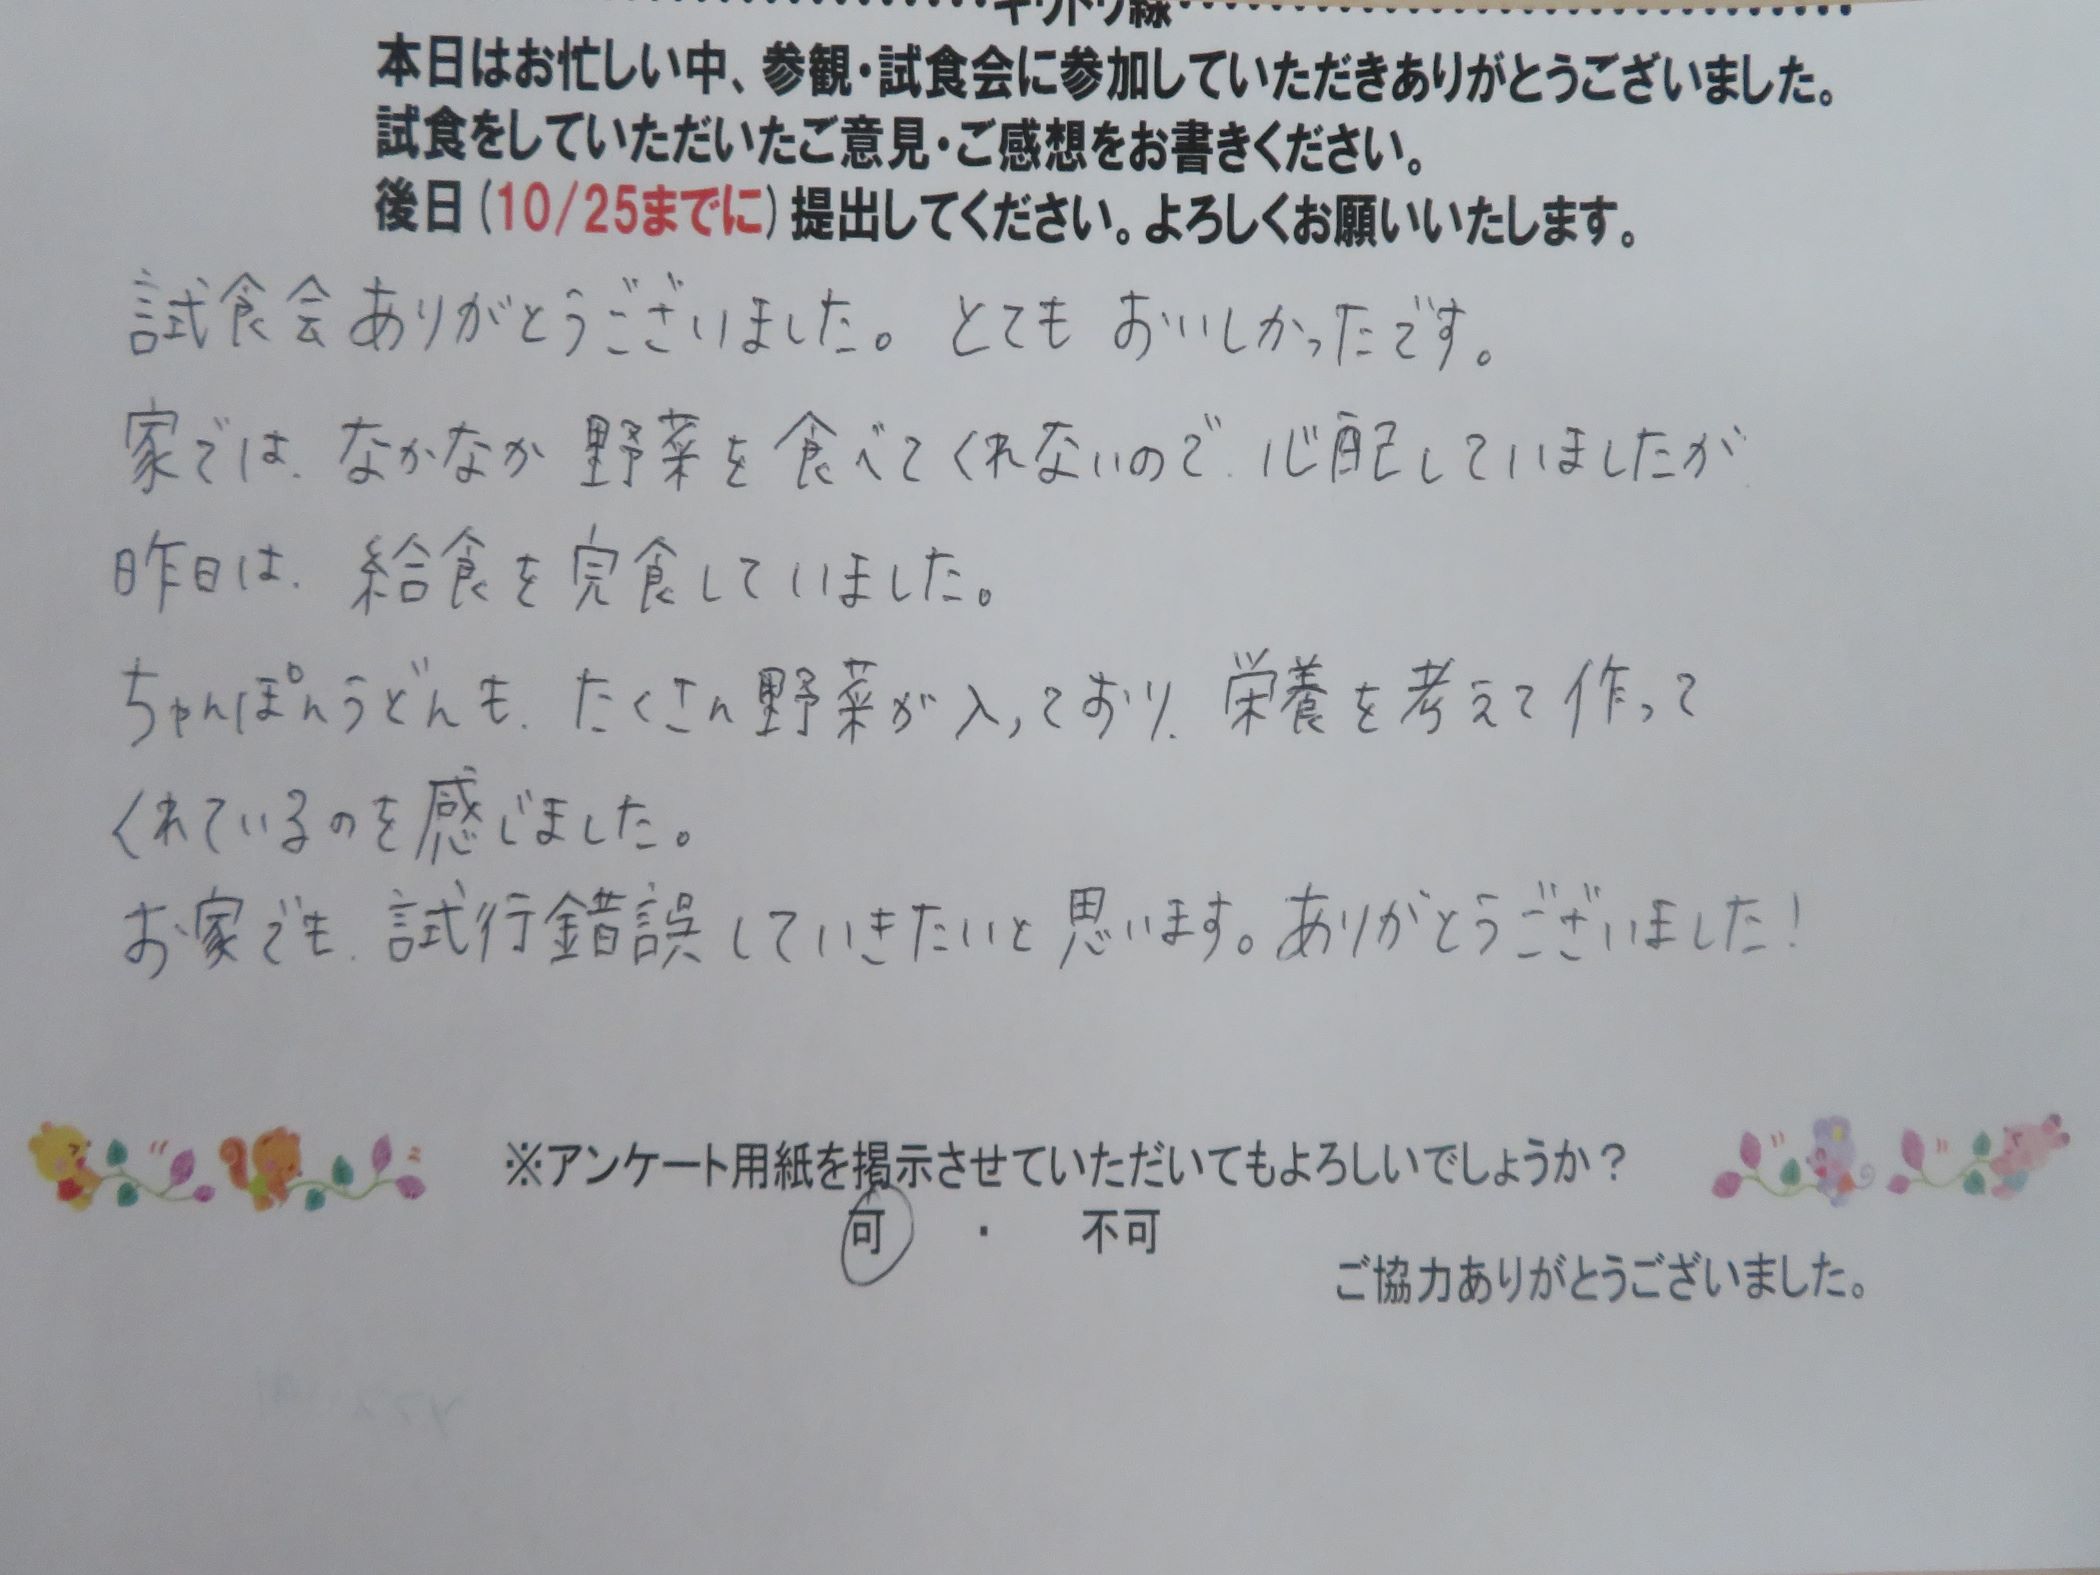 キリトリ線
本日はお忙しい中、参観・試食会に参加していただきありがとうございました。
試食をしていただいたご意見・ご感想をお書きください。
後日(10/25までに)提出してください。よろしくお願いいたします。
試食会ありがとうございました。とてもおいしかったです。
家では、なかなか野菜を食べてくれないので、心配していましたが
昨日は、給食を完食していました。
ちゃんぽんうどんも、たくさん野菜が入っており、栄養を考えて作って
くれているのを感じました。
お家でも、試行錯誤していきたいと思います。ありがとうございました!
※アンケート用紙を掲示させていただいてもよろしいでしょうか?
可 ・ 不可
ご協力ありがとうございました。